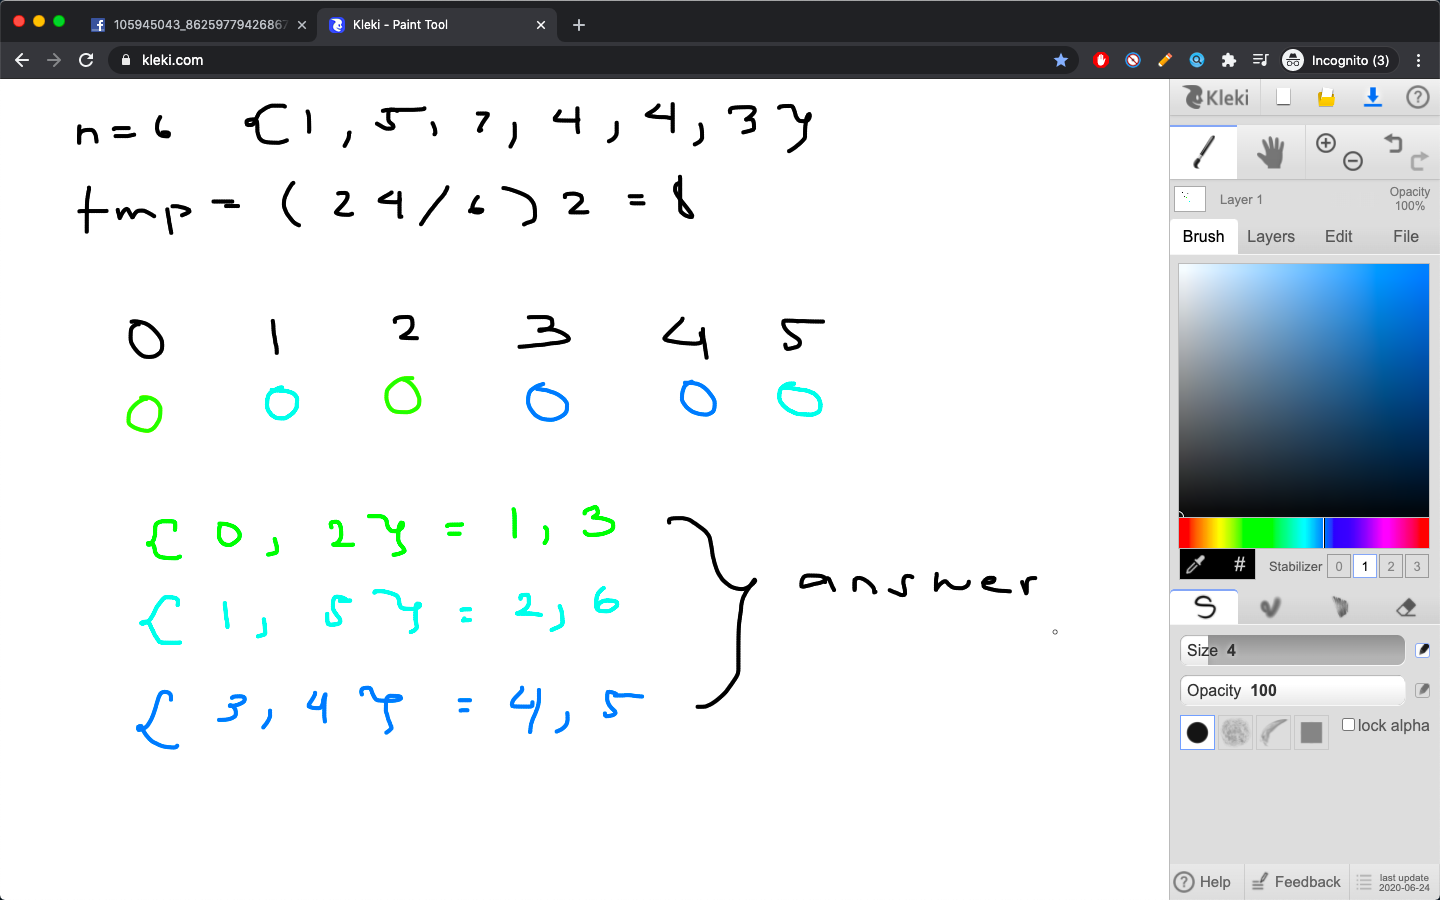 105945043_86259779426867
Kleki - Paint Tool
kleki.com
Incognito (3)
n = 6 {1, 5, 7, 4, 4, 3}
tmp = (24/6)2 = 8
0 1 2 3 4 5
0 0 0 0 0 0
{0, 2} = 1, 3
{1, 5} = 2, 6
{3, 4} = 4, 5
answer
Kleki
Layer 1
Opacity
100%
Brush Layers Edit File
# Stabilizer 0 1 2 3
Size 4
Opacity 100
lock alpha
Help Feedback last update
2020-06-24